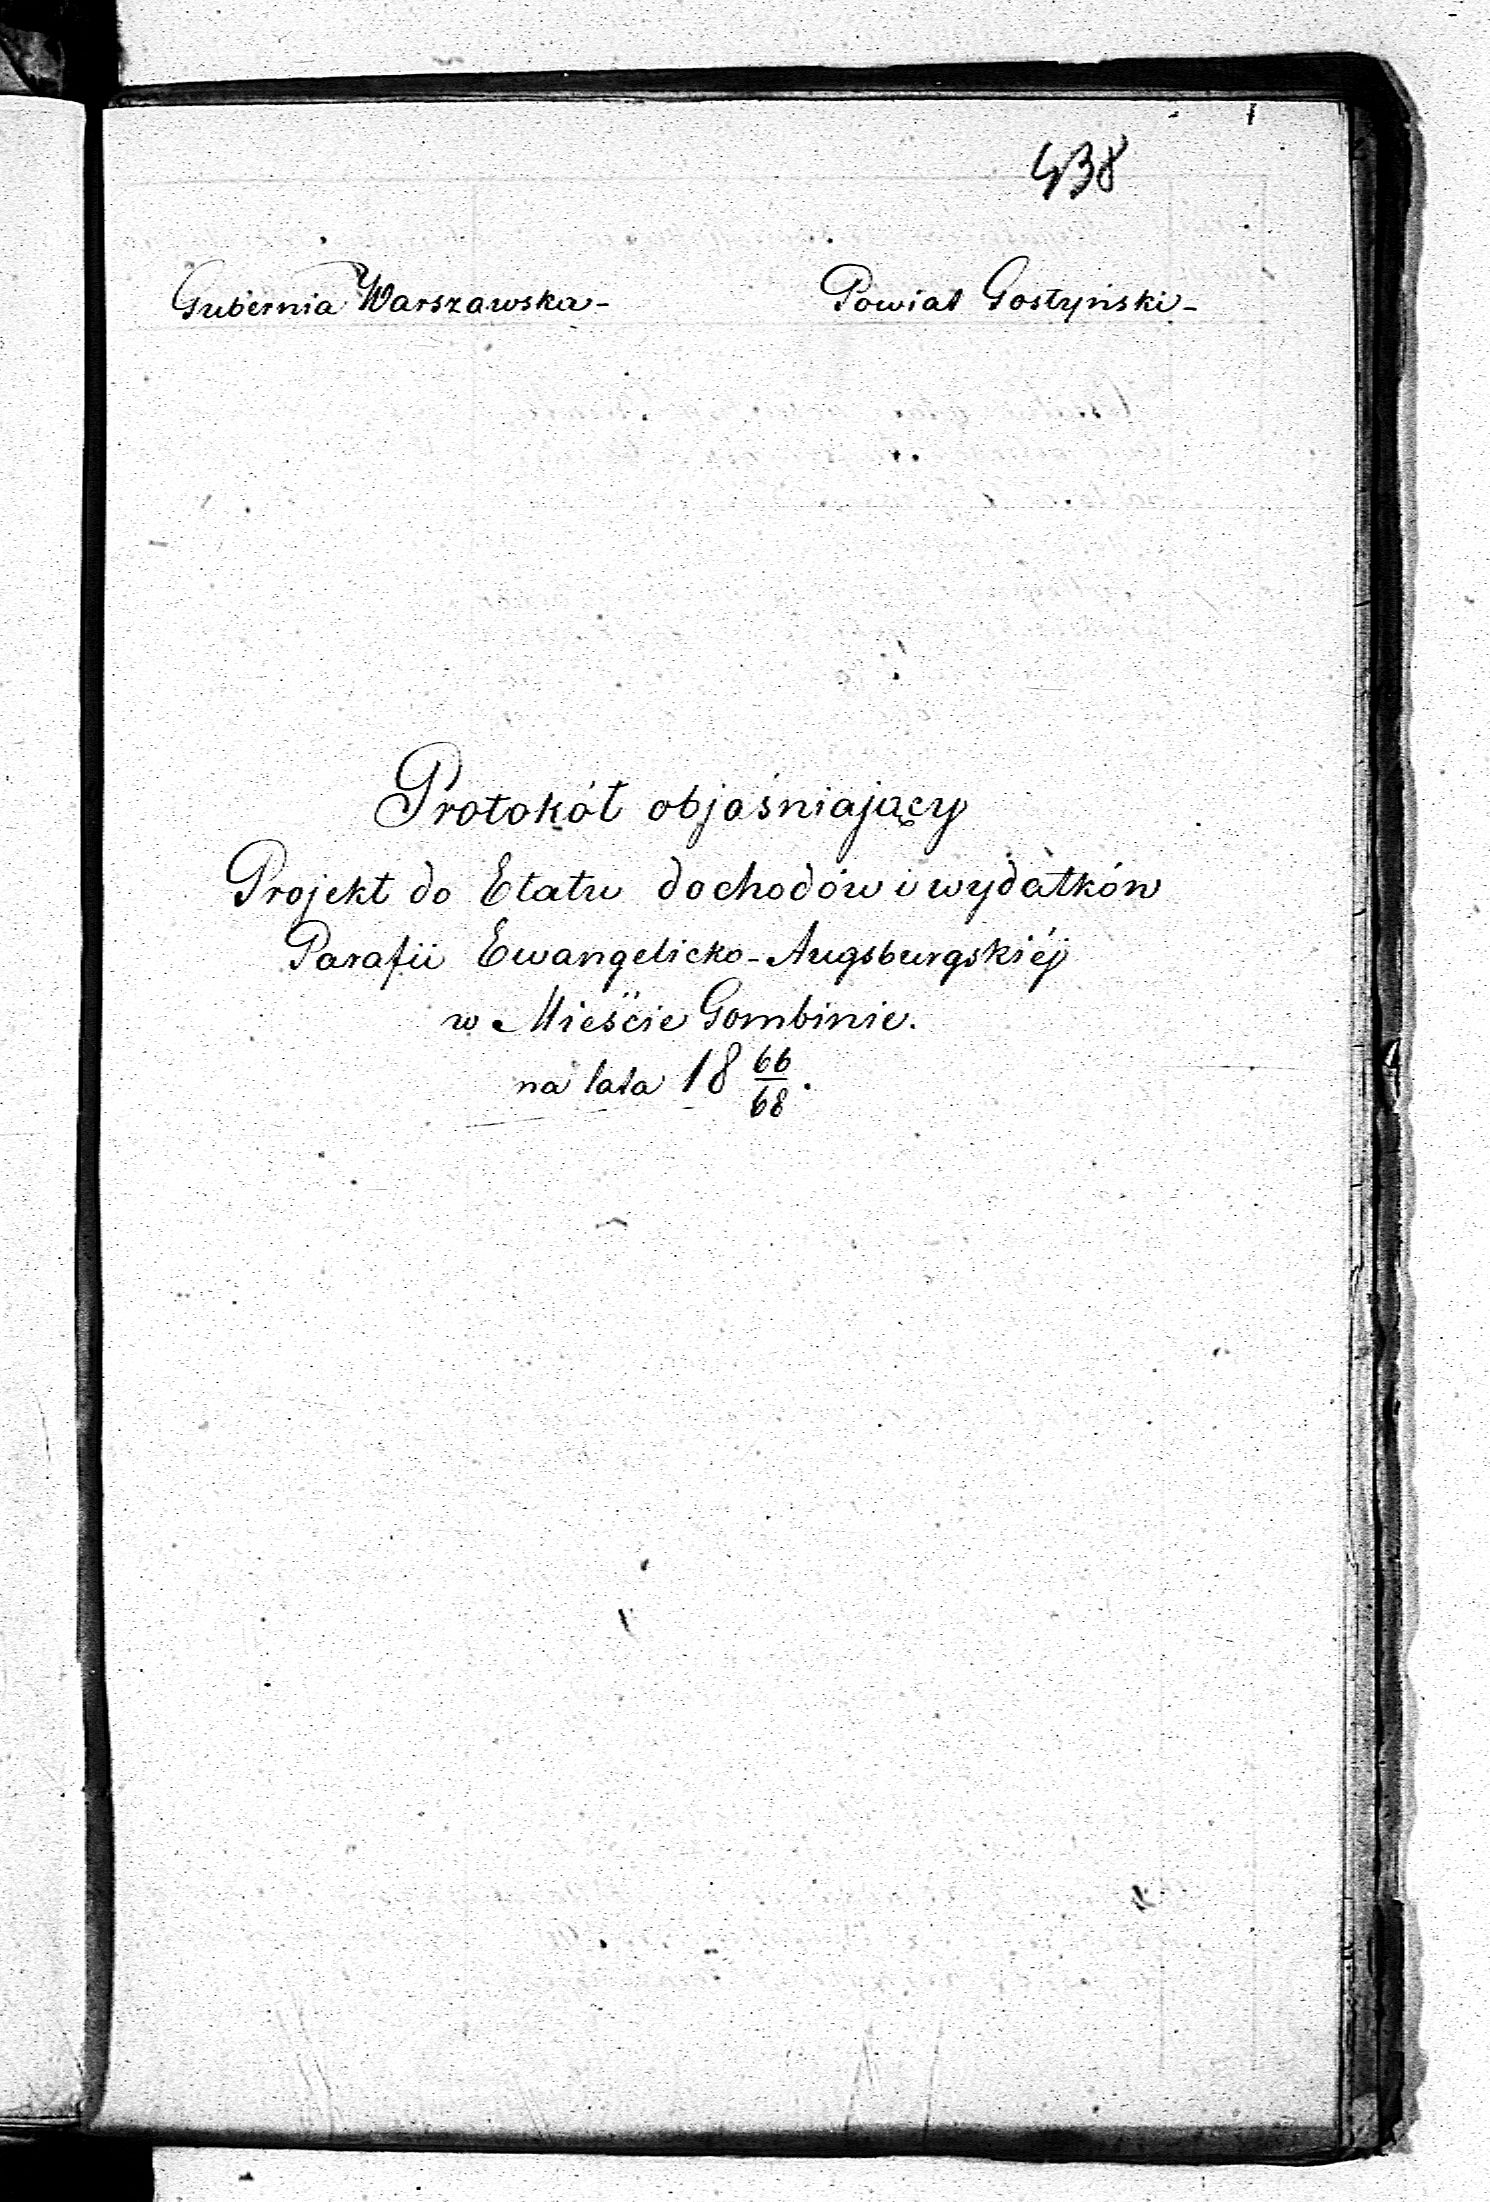 438
Gubernia Warszawska - Powiat Gostyński -
Protokół objaśniający
Projekt do Etatu dochodów i wydatków
Parafii Ewangelicko-Augsburgskiéj
w Mieście Gombinie.
na lata 18 66/68.